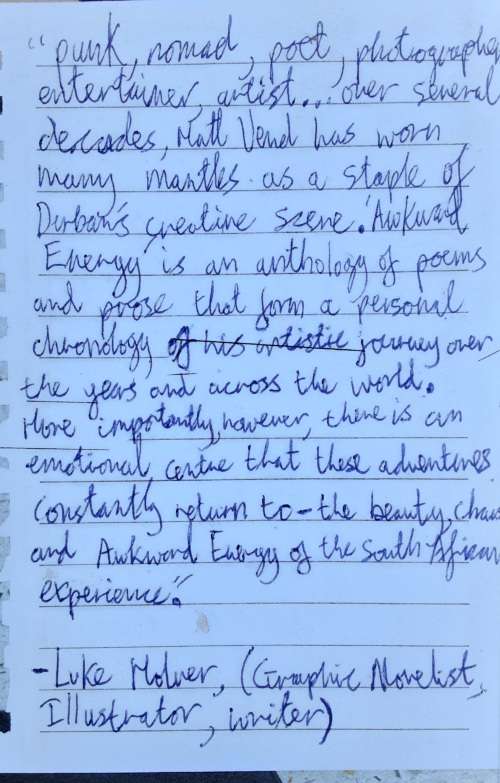 "punk, nomad, poet, photographer
entertainer, artist... over several
decades, Matt Vend has worn
many mantles as a staple of
Durban's creative scene. 'Awkward
Energy' is an anthology of poems
and prose that form a personal
chronology of his artistic journey over
the years and across the world.
More importantly, however, there is an
emotional centre that these adventures
constantly return to - the beauty, chaos
and Awkward Energy of the South African
experience".
- Luke Molver, (Graphic Novelist,
Illustrator, writer)